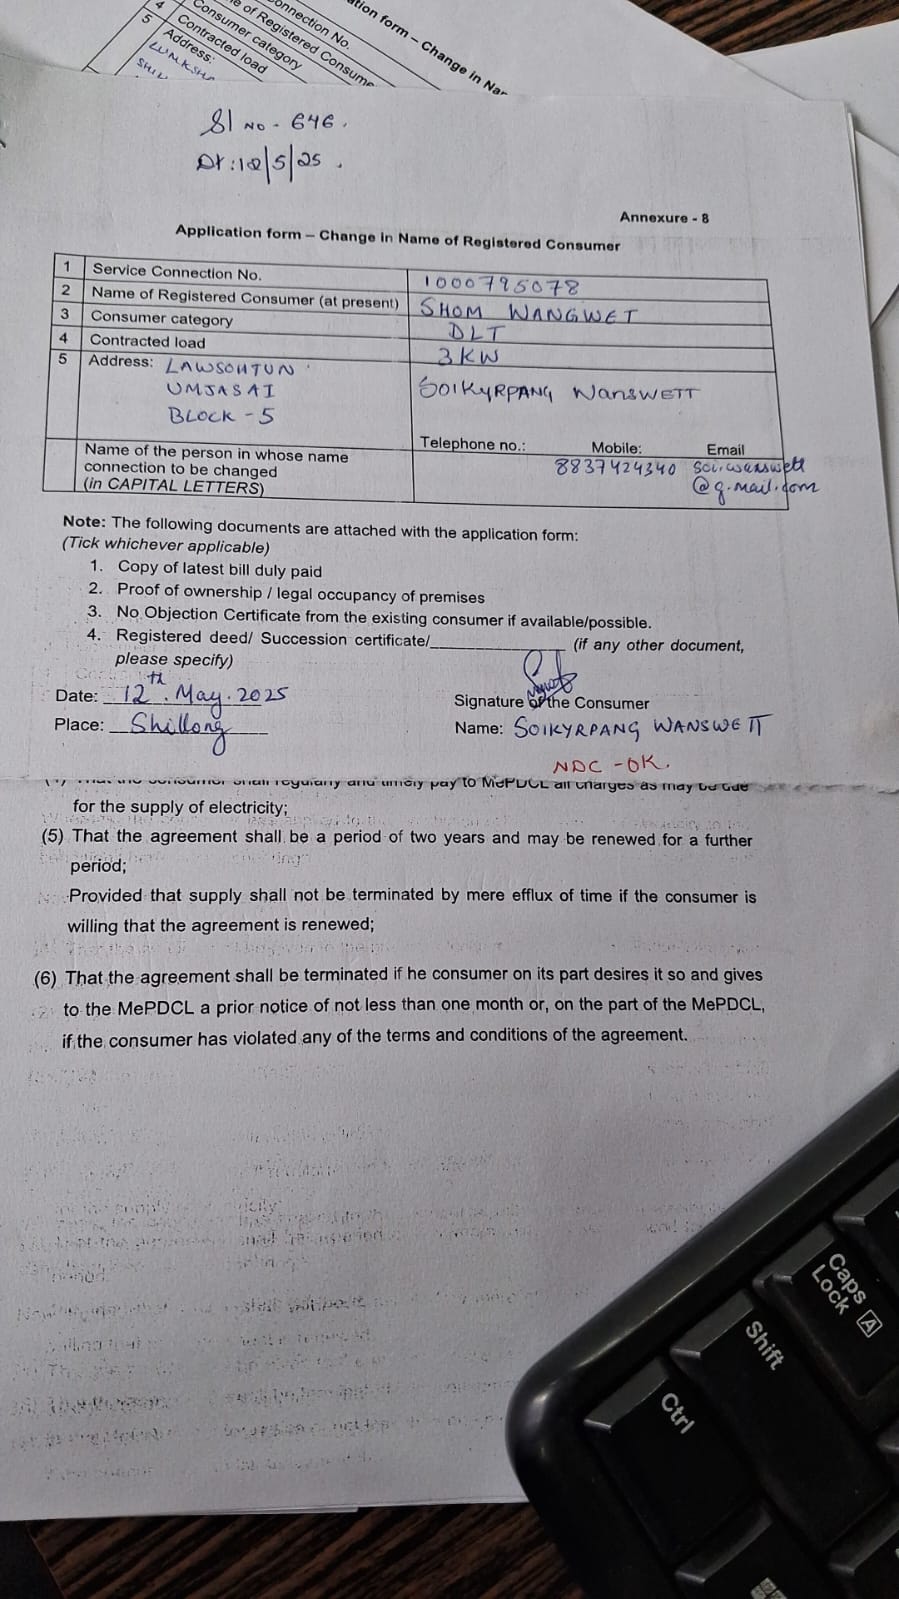 ation form – Change in Nam
onnection No.
e of Registered Consume
Consumer category
4 Contracted load
5 Address:
Sl No - 646.
Dt: 12/5/25.
Annexure - 8
Application form – Change in Name of Registered Consumer
1 Service Connection No. 1000795078
2 Name of Registered Consumer (at present) SHOM WANGWET
3 Consumer category DLT
4 Contracted load 3KW
5 Address: LAWSOHTUN
UMJASAI SOIKYRPANG WANSWETT
BLOCK - 5
Telephone no.: Mobile: Email
Name of the person in whose name 8837424340 soi.wanswett
connection to be changed @g.mail.com
(in CAPITAL LETTERS)
Note: The following documents are attached with the application form:
(Tick whichever applicable)
1. Copy of latest bill duly paid
2. Proof of ownership / legal occupancy of premises
3. No Objection Certificate from the existing consumer if available/possible.
4. Registered deed/ Succession certificate/ (if any other document,
please specify)
Date: 12th. May. 2025 Signature of the Consumer
Place: Shillong Name: SOIKYRPANG WANSWETT
NDC - OK.
consumer shall regularly and timely pay to MePDCL all charges as may be due
for the supply of electricity;
(5) That the agreement shall be a period of two years and may be renewed for a further
period;
Provided that supply shall not be terminated by mere efflux of time if the consumer is
willing that the agreement is renewed;
(6) That the agreement shall be terminated if he consumer on its part desires it so and gives
to the MePDCL a prior notice of not less than one month or, on the part of the MePDCL,
if the consumer has violated any of the terms and conditions of the agreement.
Caps
Lock A
Shift
Ctrl